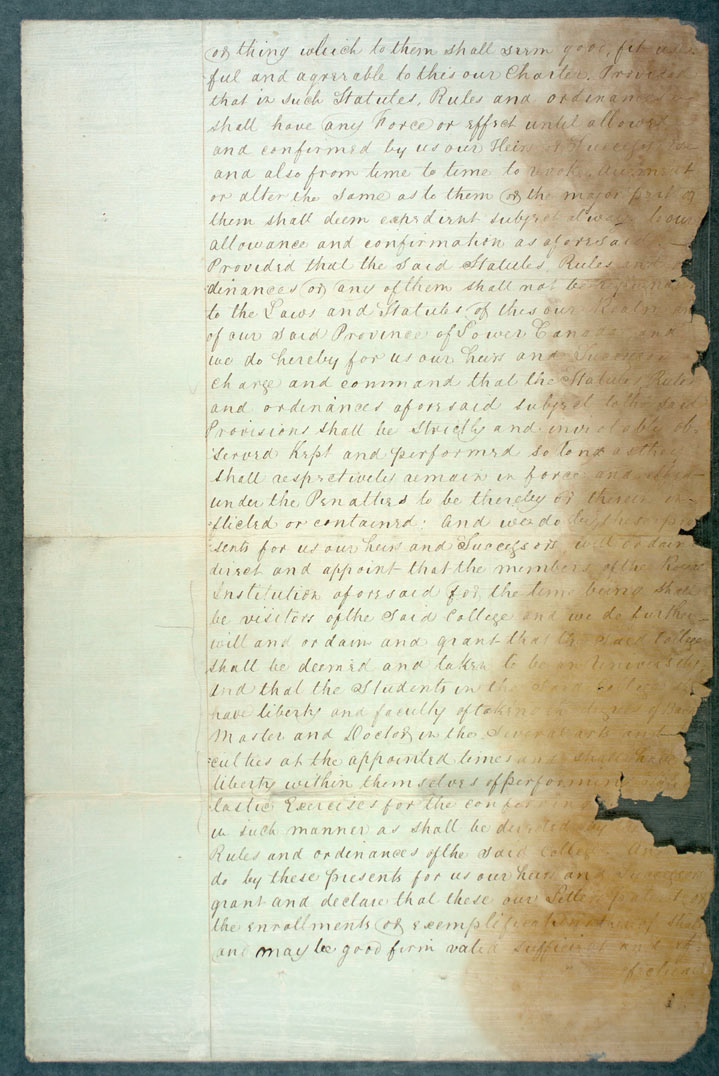 or thing which to them shall seem good, fit use
ful and agreeable to this our Charter. Provided
that in such Statutes, Rules and ordinances
shall have any Force or effect until allowed
and confirmed by us our Heirs or Success
and also from time to time to revoke
or alter the same as to them or the major part of
them shall deem expedient subject always to our
allowance and confirmation as aforesaid
Provided that the said Statutes, Rules and
dinances or any of them shall not be repugnant
to the Laws and Statutes of this our Realm
of our said Province of Lower Canada and
we do hereby for us our heirs and Successors
charge and command that the Statutes Rules
and ordinances aforesaid subject to the said
Provisions shall be strictly and inviolably ob
served Kept and performed so long as they
shall respectively remain in force and
under the Penalties to be thereby or therein in
flicted or contained: And we do by these pre
sents for us our heirs and Successors, will ordain
direct and appoint that the members of the Royal
Institution aforesaid for the time being shall
be visitors of the Said College and we do further
will and ordain and grant that the said College
shall be deemed and taken to be an University
And that the Students in the said College
have liberty and faculty of taking
Master and Doctor in the Several arts and
culties at the appointed times and shall have
liberty within themselves of performing
lastic Exercises for the conferring
in such manner as shall be directed by
Rules and ordinances of the said College. And
do by these presents for us our heirs and Successors
grant and declare that these our Letters patent or
the enrollments or exemplification thereof shall
and may be good firm valid sufficient and